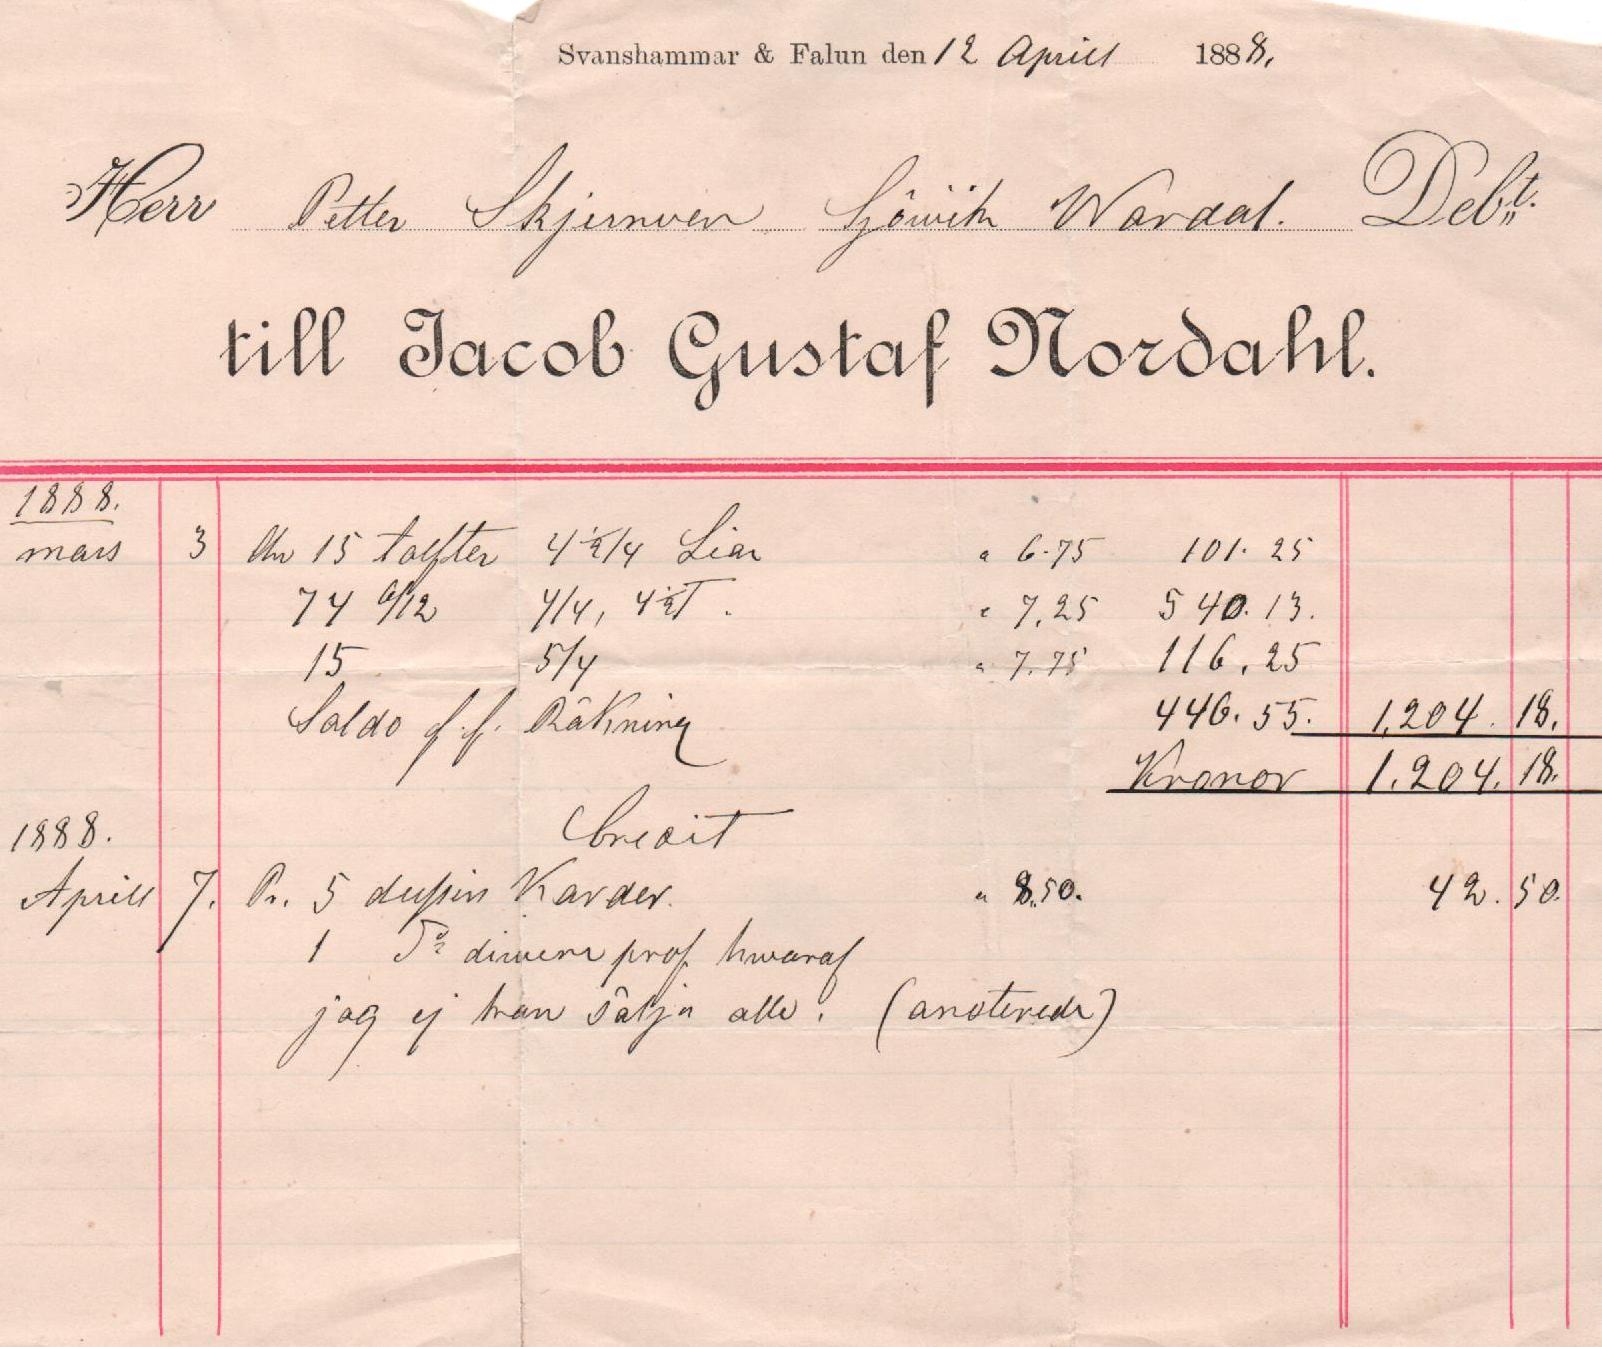 Svanshammar & Falun den 12 Aprill 1888.
Herr Petter Skjernven Gjöwik Wardal. Debt.
till Jacob Gustaf Nordahl.
1888.
mars 3 An 15 tolfter 4½/4 Liar a 6.75 101.25
74 6/12 4/4, 4½T. " 7,25 540.13.
15 5/4 " 7.75 116,25
Saldo f.f. Räkning 446.55. 1,204.18.
Kronor 1.204.18.
Credit
1888.
Aprill 7. Pr. 5 dussin Karder. " 8.50. 42.50.
1 Do diverse prof hwaraf
jag ej kan sälja alla. (anoterede)